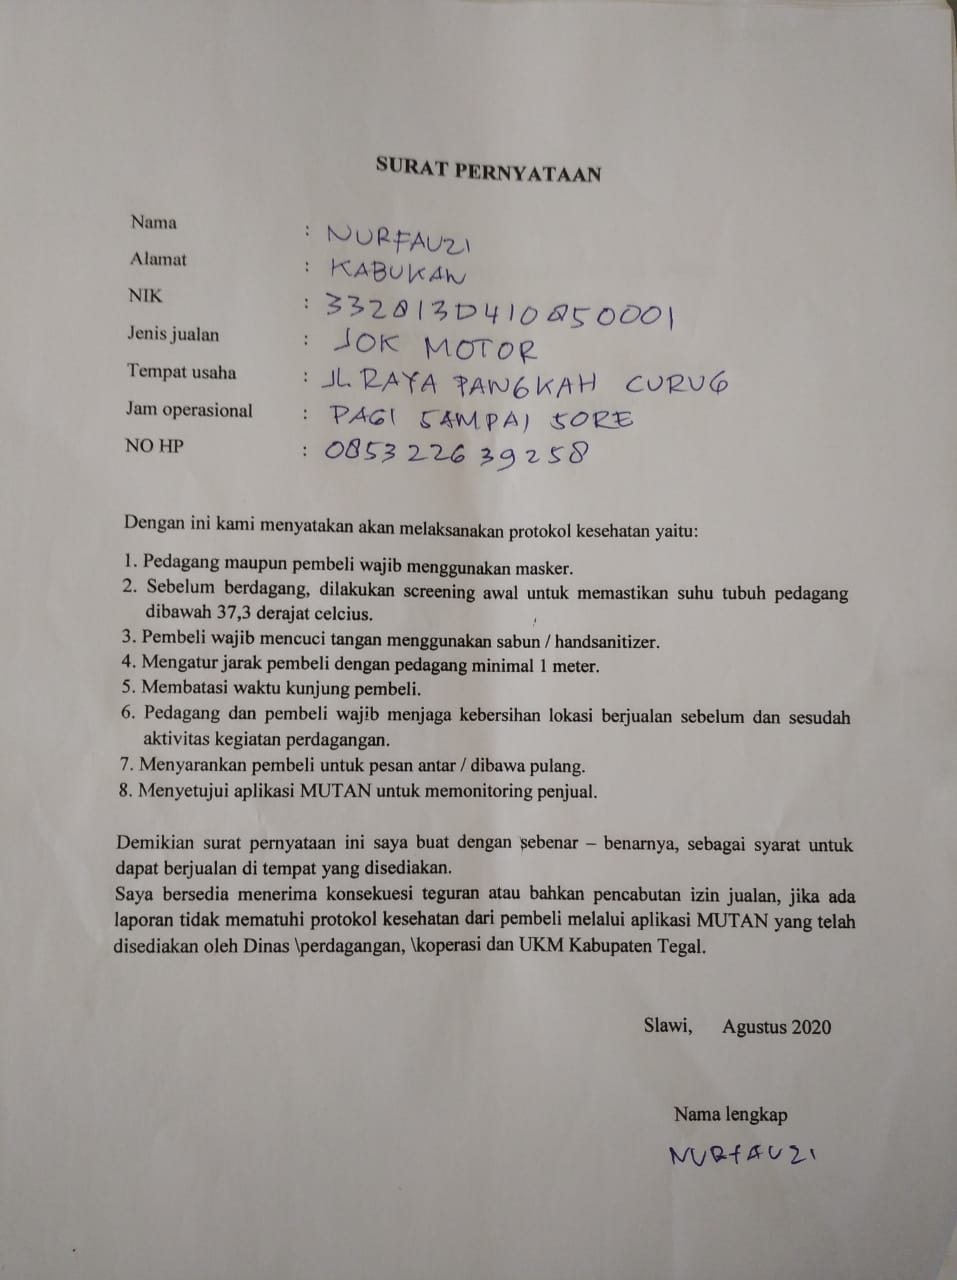 SURAT PERNYATAAN
Nama : NURFAUZI
Alamat : KABUKAN
NIK : 3328130410850001
Jenis jualan : JOK MOTOR
Tempat usaha : JL. RAYA PANGKAH CURUG
Jam operasional : PAGI SAMPAI SORE
NO HP : 0853 226 39258
Dengan ini kami menyatakan akan melaksanakan protokol kesehatan yaitu:
1. Pedagang maupun pembeli wajib menggunakan masker.
2. Sebelum berdagang, dilakukan screening awal untuk memastikan suhu tubuh pedagang
dibawah 37,3 derajat celcius.
3. Pembeli wajib mencuci tangan menggunakan sabun / handsanitizer.
4. Mengatur jarak pembeli dengan pedagang minimal 1 meter.
5. Membatasi waktu kunjung pembeli.
6. Pedagang dan pembeli wajib menjaga kebersihan lokasi berjualan sebelum dan sesudah
aktivitas kegiatan perdagangan.
7. Menyarankan pembeli untuk pesan antar / dibawa pulang.
8. Menyetujui aplikasi MUTAN untuk memonitoring penjual.
Demikian surat pernyataan ini saya buat dengan sebenar – benarnya, sebagai syarat untuk
dapat berjualan di tempat yang disediakan.
Saya bersedia menerima konsekuesi teguran atau bahkan pencabutan izin jualan, jika ada
laporan tidak mematuhi protokol kesehatan dari pembeli melalui aplikasi MUTAN yang telah
disediakan oleh Dinas \perdagangan, \koperasi dan UKM Kabupaten Tegal.
Slawi, Agustus 2020
Nama lengkap
NURFAUZI